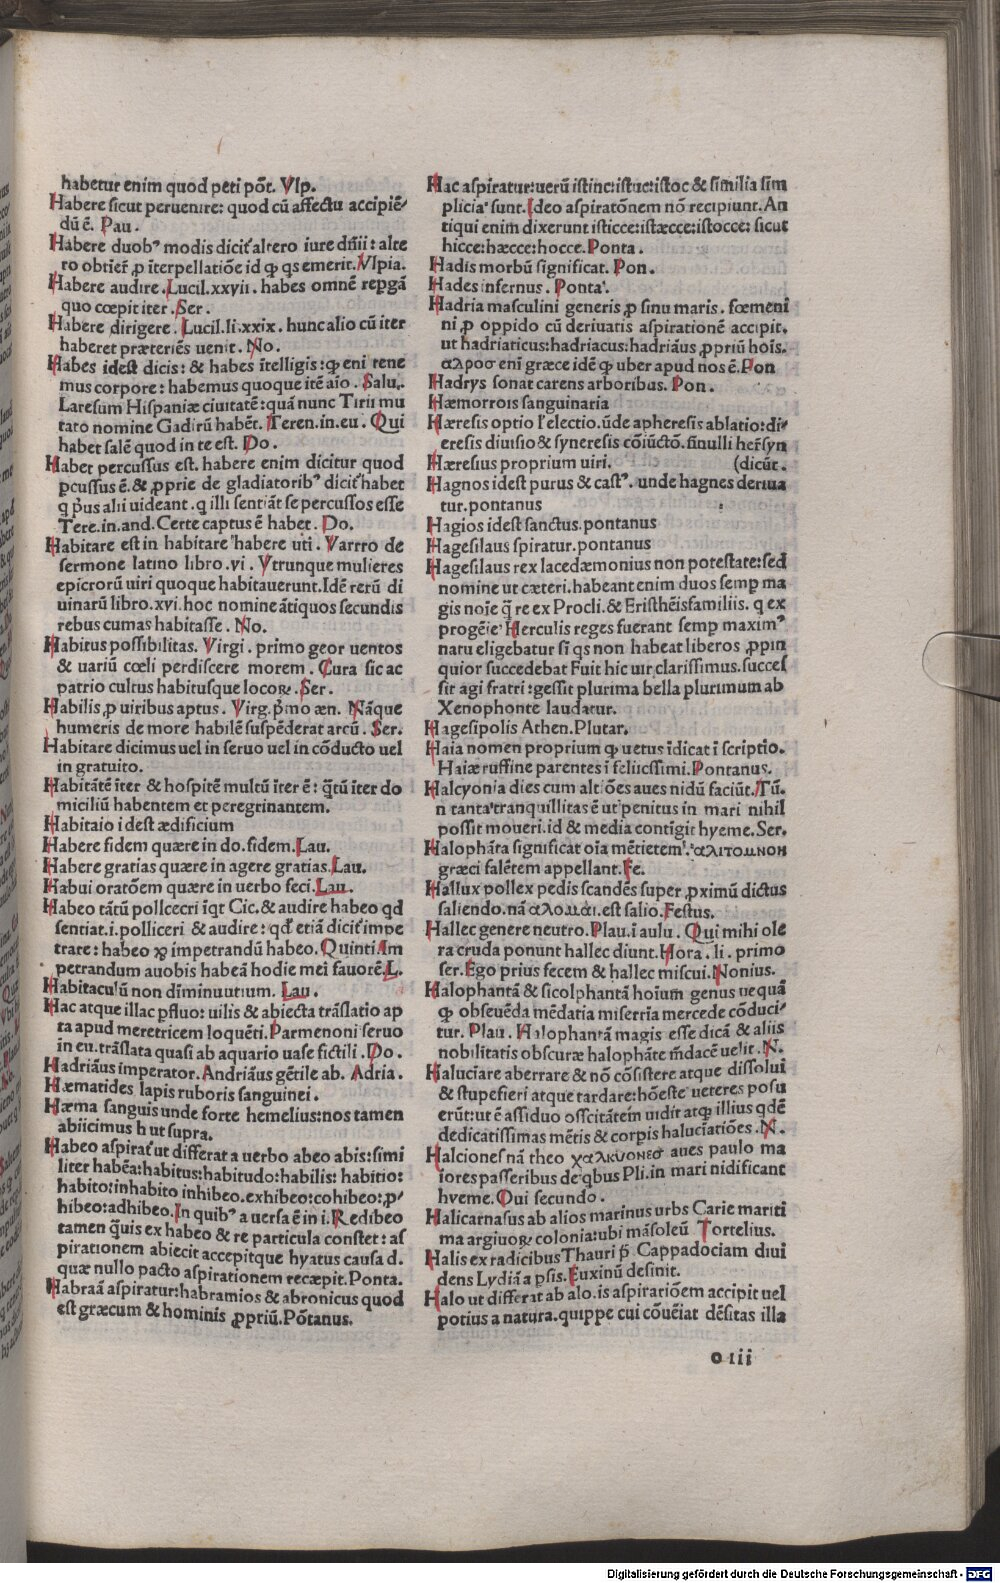 habetur enim quod peti põt. Vlp.
Habere sicut peruenire: quod cũ affectu accipiẽ⸗
dũ ẽ. Pau.
Habere duobꝰ modis dicit̃ altero iure dñii: alte
ro obtier̃ ꝓ ĩterpellatiõe id ꝙ qs emerit. Vlpia.
Habere audire. Lucil. xxvii. habes omnẽ reꝑgã
quo cœpit iter. Ser.
Habere dirigere. Lucil. li. xxix. hunc alio cũ iter
haberet præteriẽs uenit. No.
Habes idest dicis: & habes ĩtelligis: ꝙ eni rene
mus corpore: habemus quoque itẽ aio. Salu.
Laresum Hispaniæ ciuitatẽ: quã nunc Tirii mu
tato nomine Gadirũ habẽt. Teren. in. eu. Qui
habet salẽ quod in te est. Do.
Habet percussus est. habere enim dicitur quod
ꝑcussus ẽ. & ꝓprie de gladiatoribꝰ dicit̃ habet
q p̃us alii uideant. q illi sentiãt se percussos esse
Tere. in. and. Certe captus ẽ habet. Do.
Habitare est in habitare habere uti. Varrro de
sermone latino libro. vi. Vtrunque mulieres
epicrorũ uiri quoque habitauerunt. Idẽ rerũ di
uinarũ libro. xvi. hoc nomine ãtiquos secundis
rebus cumas habitasse. No.
Habitus possibilitas. Virgi. primo geor uentos
& uariũ cœli perdiscere morem. Cura sic ac
patrio cultus habitusque locoꝝ. Ser.
Habilis ꝓ uiribus aptus. Virg. p̃mo æn. Nãque
humeris de more habilẽ suspẽderat arcũ. Ser.
Habitare dicimus uel in seruo uel in cõducto uel
in gratuito.
Habitãtẽ iter & hospitẽ multũ iter ẽ: q̃tũ iter do
miciliũ habentem et peregrinantem.
Habitaio i dest ædificium
Habere fidem quære in do. fidem. Lau.
Habere gratias quære in agere gratias. Lau.
Habui oratõem quære in uerbo feci. Lau.
Habeo tãtũ pollcecri iqt Cic. & audire habeo qd
sentiat. i. polliceri & audire: qđ etiã dicit̃ impe
trare: habeo ꝙ impetrandũ habeo. Quinti Am
petrandum auobis habeã hodie mei fauorẽ. L.
Habitaculũ non diminuutium. Lau.
Hac atque illac ꝑfluo: uilis & abiecta trãslatio ap
ta apud meretricem loquẽti. Parmenoni seruo
in eu. trãslata quasi ab aquario uase fictili. Do.
Hadriãus imperator. Andriãus gẽtile ab. Adria.
Hæmatides lapis ruboris sanguinei.
Hæma sanguis unde forte hemelius: nos tamen
abiicimus h ut supra.
Habeo aspirat̃ ut differat a uerbo abeo abis: simi
liter habẽa: habitus: habitudo: habilis: habitio:
habito: inhabito inhibeo. exhibeo: cohibeo: ꝓ⸗
hibeo: adhibeo. In quibꝰ a uersa ẽ in i. Redibeo
tamen q̃uis ex habeo & re particula constet: as
pirationem abiecit accepitque hyatus causa d.
quæ nullo pacto aspirationem recæpit. Ponta.
Habraã aspiratur: habramios & abronicus quod
est græcum & hominis ꝓpriũ. Põtanus.
Hac aspiratur: uerũ istinc: istuc: istoc & similia sim
plicia sunt. Ideo aspiratõnem nõ recipiunt. An
tiqui enim dixerunt isticce: istæcce: istocce: sicut
hicce: hæcce: hocce. Ponta.
Hadis morbũ significat. Pon.
Hades infernus. Ponta.
Hadria masculini generis ꝓ sinu maris. fœmeni
ni ꝓ oppido cũ deriuatis aspirationẽ accipit.
ut hadriaticus: hadriacus: hadriãus ꝓpriũ hoĩs.
αλροσ eni græce idẽ ꝙ uber apud nos ẽ. Pon
Hadrys sonat carens arboribus. Pon.
Hæmorrois sanguinaria
Hæresis optio ľelectio. ũde apheresis ablatio: di⸗
eresis diuisio & syneresis cõiũctõ. sinulli her̃syn
Hæresius proprium uiri. (dicũt.
Hagnos idest purus & castꝰ. unde hagnes deriua
tur. pontanus
Hagios idest sanctus. pontanus
Hagesilaus spiratur. pontanus
Hagesilaus rex lacedæmonius non potestate: sed
nomine ut cæteri. habeant enim duos semp ma
gis noĩe q̃ re ex Procli. & Eristhẽisfamiliis. q ex
progẽie Herculis reges fuerant semp maximꝰ
natu eligebatur si qs non habeat liberos ꝓpin
quior succedebat Fuit hic uir clarissimus. succes
sit agi fratri: gessit plurima bella plurimum ab
Xenophonte laudatur.
Hagesipolis Athen. Plutar.
Haia nomen proprium ꝙ uetus ĩdicat ĩ scriptio.
Haiæ ruffine parentes ĩ feliicssimi. Pontanus.
Halcyonia dies cum altiões aues nidũ faciũt. Tũ.
n tanta tranquillitas ẽ ut penitus in mari nihil
possit moueri. id & media contĩgit hyeme. Ser.
Halophãta significat oia mẽtietem. αλιτομνον
græci falẽtem appellant. Fe.
Hallux pollex pedis scandẽs super ꝓximũ dictus
saliendo. nã αλομαι. est salio. Festus.
Hallec genere neutro. Plau. ĩ aulu. Qui mihi ole
ra cruda ponunt hallec diunt. Hora. li. primo
ser. Ego prius fecem & hallec miscui. Nonius.
Halophantã & sicolphantã hoium genus ne quã
ꝙ obseuẽda mẽdatia miserria mercede cõduci⸗
tur. Plau. Halophantã magis esse dicã & aliis
nobilitatis obscuræ halophãte m̃dacẽ uelit. N.
Haluciare aberrare & nõ cõsistere atque dissolui
& stupefieri atque tardare: hõeste ueteres posu
erũt: ut ẽ assiduo oscitãtẽm uidit atqꝫ illius qdẽ
dedicatissimas mẽtis & corpis haluciatiões. N.
Halciones nã theo χαλκυονεσ aues paulo ma
iores passeribus de qbus Pli. in mari nidificant
hyeme. Qui secundo.
Halicarnasus ab alios marinus urbs Carie mariti
ma argiuoꝝ colonia: ubi mãsoleũ Tortelius.
Halis ex radicibus Thauri p̃ Cappadociam diui
dens Lydiã a ꝑsis. Euxinũ desinit.
Halo ut differat ab alo. is aspiratiõem accipit uel
potius a natura. quippe cui cõuẽiat dẽsitas illa
o iii
Digitalisierung gefördert durch die Deutsche Forschungsgemeinschaft - DFG